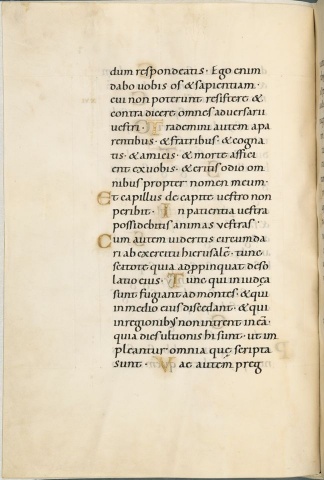 dum respondeatis · Ego enim
dabo uobis os & sapientiam ·
cui non poterunt resistere &
contradicere omnes aduersarii
uestri · Trademini autem a pa
rentibus · & fratribus · & cogna
tis · & amicis · & morte affici
ent ex uobis · & eritis odio om
nibus propter nomen meum ·
Et capillus de capite uestro non
peribit · In patientia uestra
possidebitis animas uestras ·
Cum autem uideritis circumda
ri ab exercitu hierusalē · tunc
scitote quia adppinquat deso
latio eius · Tunc qui in iudęa
sunt fugiant ad montes · & qui
in medio eius discedant · & qui
in regionibus non intrent in eā ·
quia dies ultionis hi sunt · ut im
pleantur omnia quę scripta
sunt · Vae autem pręg